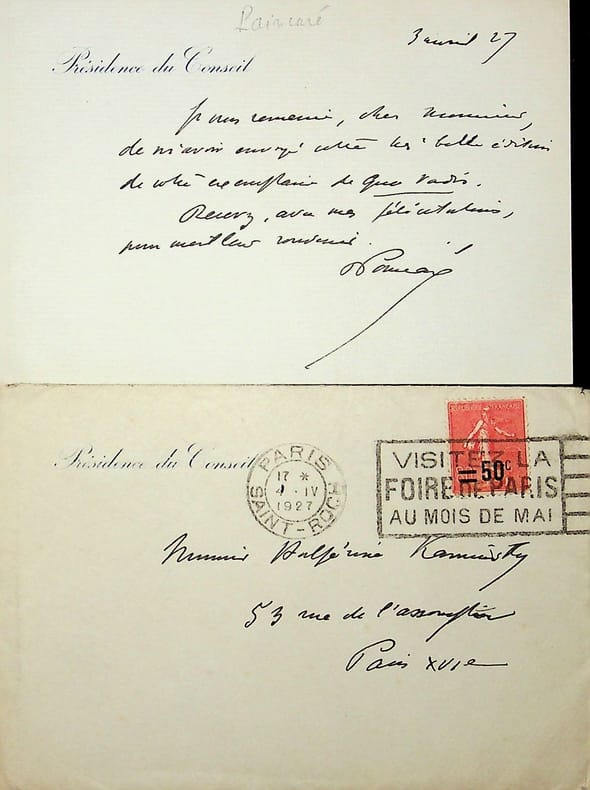 Poincaré
3 avril 27
Présidence du Conseil
Je vous remercie, cher Monsieur,
de m'avoir envoyé cette très belle édition
de votre exemplaire de Quo Vadis.
Recevez, avec mes félicitations,
mon meilleur souvenir.
RPoincaré
Présidence du Conseil
PARIS
17 *
4 - IV
1927
SAINT-ROCH
REPUBLIQUE FRANÇAISE
50c
VISITEZ LA
FOIRE DE PARIS
AU MOIS DE MAI
Monsieur Halpérine Kaminsky
53 rue de l'assomption
Paris XVIe